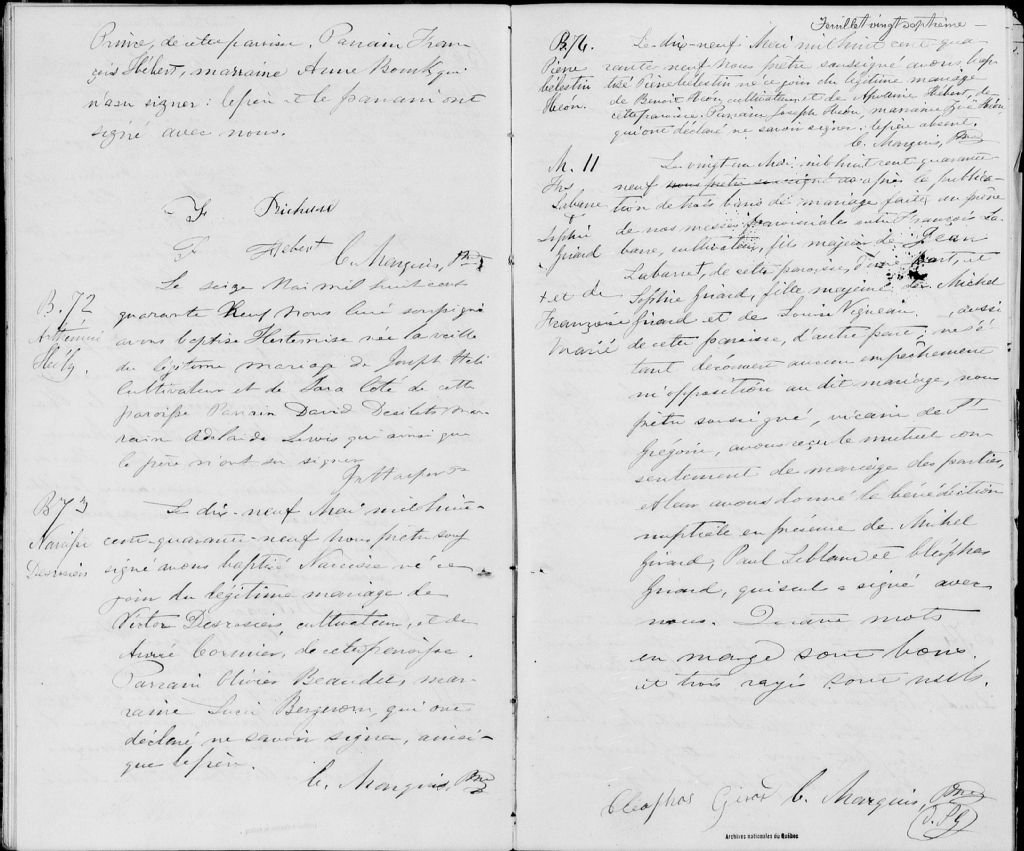 Prince, de cette paroisse. Parrain Fran-
çois Hébert, marraine Anne Bourk qui
n'a su signer : le père et le parrain ont
signé avec nous.
F Richard
F Hébert C. Marquis, Ptre
B. 72
Hély.
Le seize Mai mil huit cent
quarante neuf nous curé soussigné
avons baptisé Hertemise née la veille
du légitime mariage de Joseph Heli
cultivateur et de Sara Coté de cette
paroisse Parrain David Desilets Mar-
raine Adelaide Lewis qui ainsi que
le père n'ont su signer
Jn Harper Ptre
B 73
Narcisse
Desrosiers
Le dix-neuf Mai mil huit-
cent-quarante-neuf nous prêtre sous
signé avons baptisé Narcisse né ce
jour du légitime mariage de
Victor Desrosiers cultivateur, et de
Cormier, de cette paroisse.
Parrain Olivier Beaudet, mar-
raine Lucie Bergeron, qui ont
déclaré ne savoir signer, ainsi-
que le père.
C. Marquis, Ptre
Feuillet vingt-septième —
B. 74.
Pierre
Célestin
Héon.
Le dix-neuf Mai mil huit cent qua-
rante-neuf nous prêtre soussigné avons bap-
tisé Pierre Célestin né ce jour du légitime mariage
de Benoit Héon, cultivateur, et de Apolanie Hébert, de
cette paroisse. Parrain Joseph Héon, marraine Zoé Héon,
qui ont déclaré ne savoir signer : le père absent.
C. Marquis, Ptre
M. 11
Frs
Labarre
&
Sophie
Girard
Le vingt un Mai mil huit cent quarante
neuf nous prêtre soussigné av après la publica-
tion de trois bans de mariage faite au prône
de nos messes paroissiales entre François La-
barre, cultivateur, fils majeur de Jean
Labarre, de cette paroisse, d'une part, et
Sophie Girard, fille majeure de Michel
Girard et de Louise Vigneau, aussi
de cette paroisse, d'autre part, ne s'é
tant découvert aucun empêchement
ni opposition au dit mariage, nous
prêtre soussigné, vicaire de St
Grégoire, avons reçu le mutuel con-
sentement de mariage des parties,
et leur avons donné la bénédiction
nuptiale en présence de Michel
Girard, Paul Leblanc et Cléophas
Girard, qui seul a signé avec
nous. Quatre mots
en marge sont bons.
et trois rayés sont nuls.
+ et de
Françoise
Marié
Cleophas Giroir C. Marquis, Ptre
Archives nationales du Québec